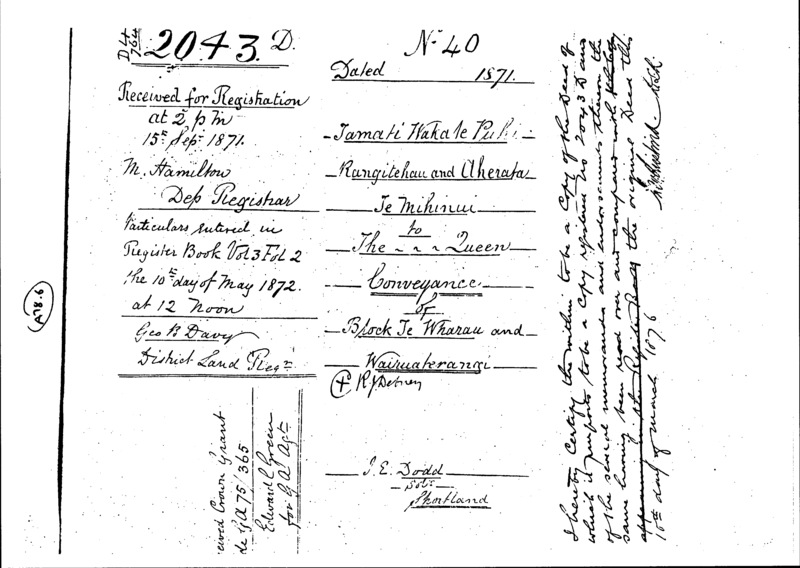 D 4
764
2043. D.
Received for Registration
at 2 p m
15th Sepr 1871.
M. Hamilton
Dep Registrar
Particulars entered in
Register Book Vol 3 Fol 2
the 10th day of May 1872.
at 12 Noon
Geo B Davy
District Land Regr
eived Crown Grant
de GA 75/365
Edward C Green
for GA Agt
A78.6
No 40
Dated 1871.
Tamati Waka te Puhi
Rangitehau and Aherata
Te Mihinui
to
The Queen
Conveyance
of
Block Te Wharau and
Wairuaterangi
J. E. Dodd
Solr
Shortland
I hereby certify the within to be a Copy of the Deed of
which it purports to be a Copy registered No 2043 D and
of the several memoranda and endorsements thereon the
same having been read over and compared with
the original Deed this
10th day of March 1876